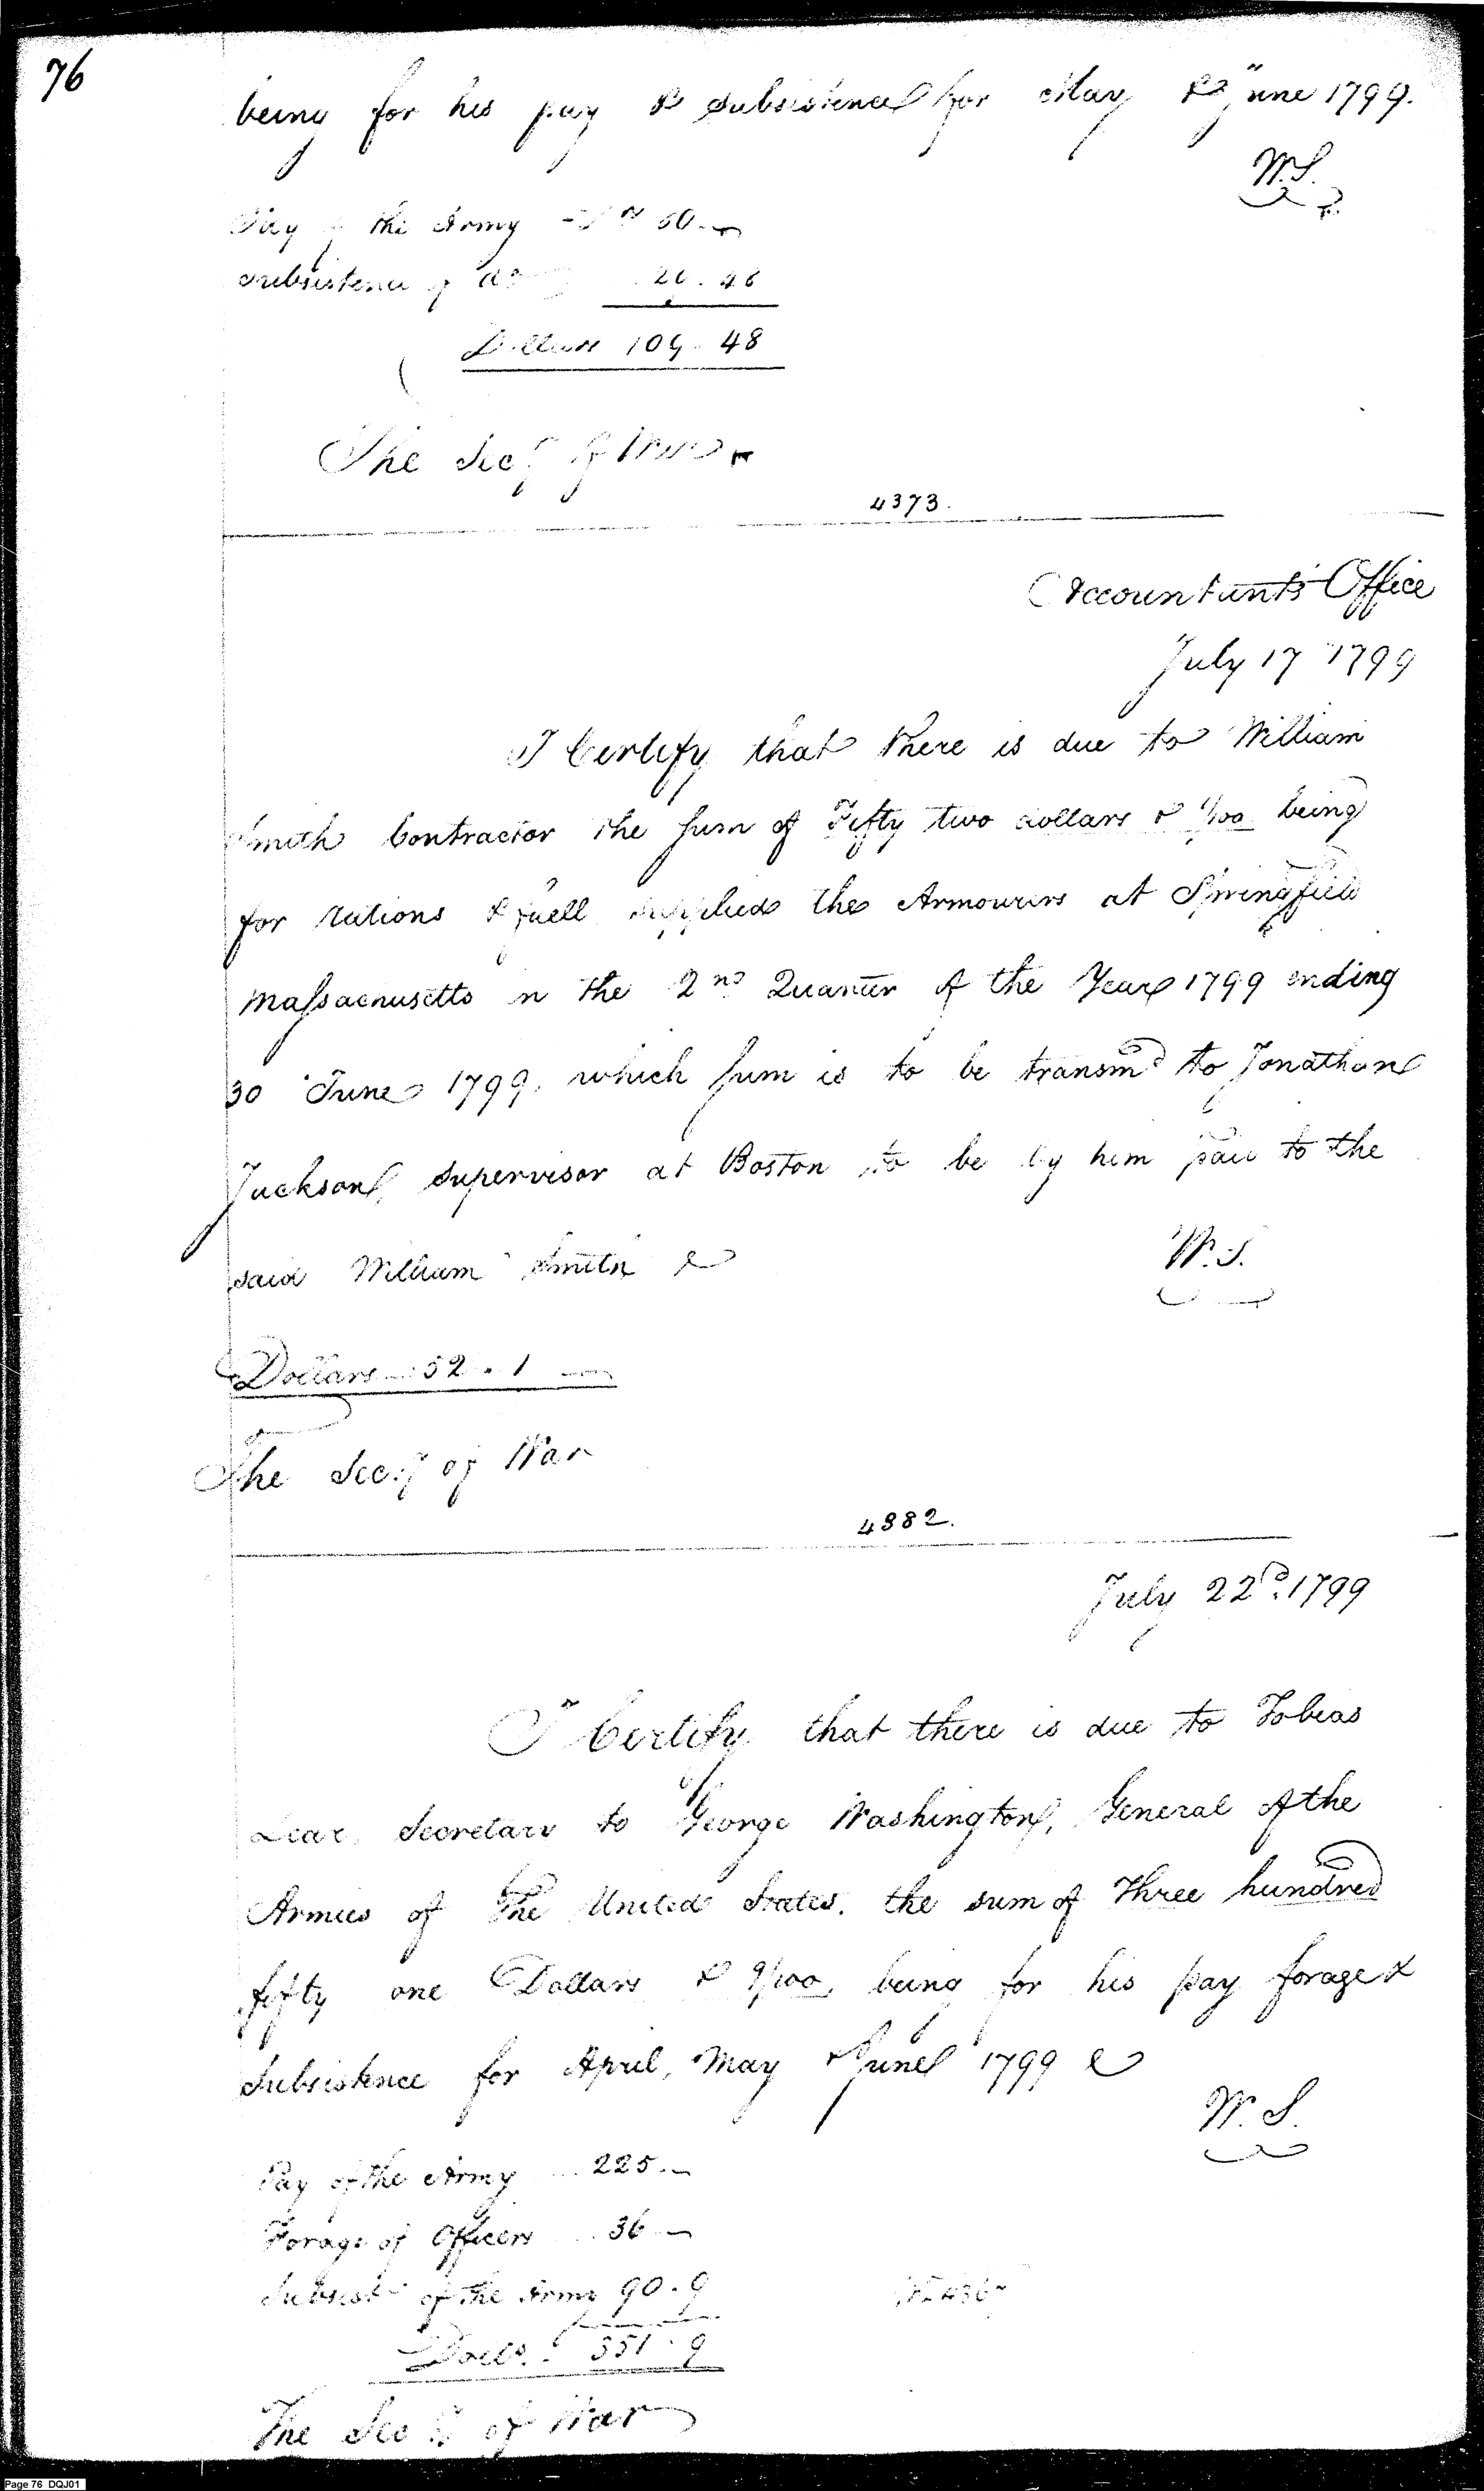 76
being for his pay & subsistence for May & June 1799.
W.S.
Pay of the Army
Subsistence of do
Dollars 109. 48
The Secy of War
4373.
Accountants Office
July 17 1799
I Certify that there is due to William
Smith Contractor the sum of Fifty two dollars & 1/100 being
for rations & fuell supplied the Armourers at Springfield
Massachusetts in the 2nd Quarter of the Year 1799 ending
30 June 1799, which sum is to be transmd to Jonathan
Jackson, supervisor at Boston to be by him paid to the
said William Smith
W.S.
Dollars 52. 1
The Secy of War
4382.
July 22d. 1799
I Certify that there is due to Tobias
Lear, Secretary to George Washington, General of the
Armies of the United States, the sum of Three hundred
fifty one Dollars & 9/100, being for his pay forage &
Subsistence for April, May & June 1799
W.S.
Pay of the Army 225.
Forage of Officers 36
Subsist of the Army 90. 9
Dolls. 351. 9
The Secy of War
Page 76 DQJ01